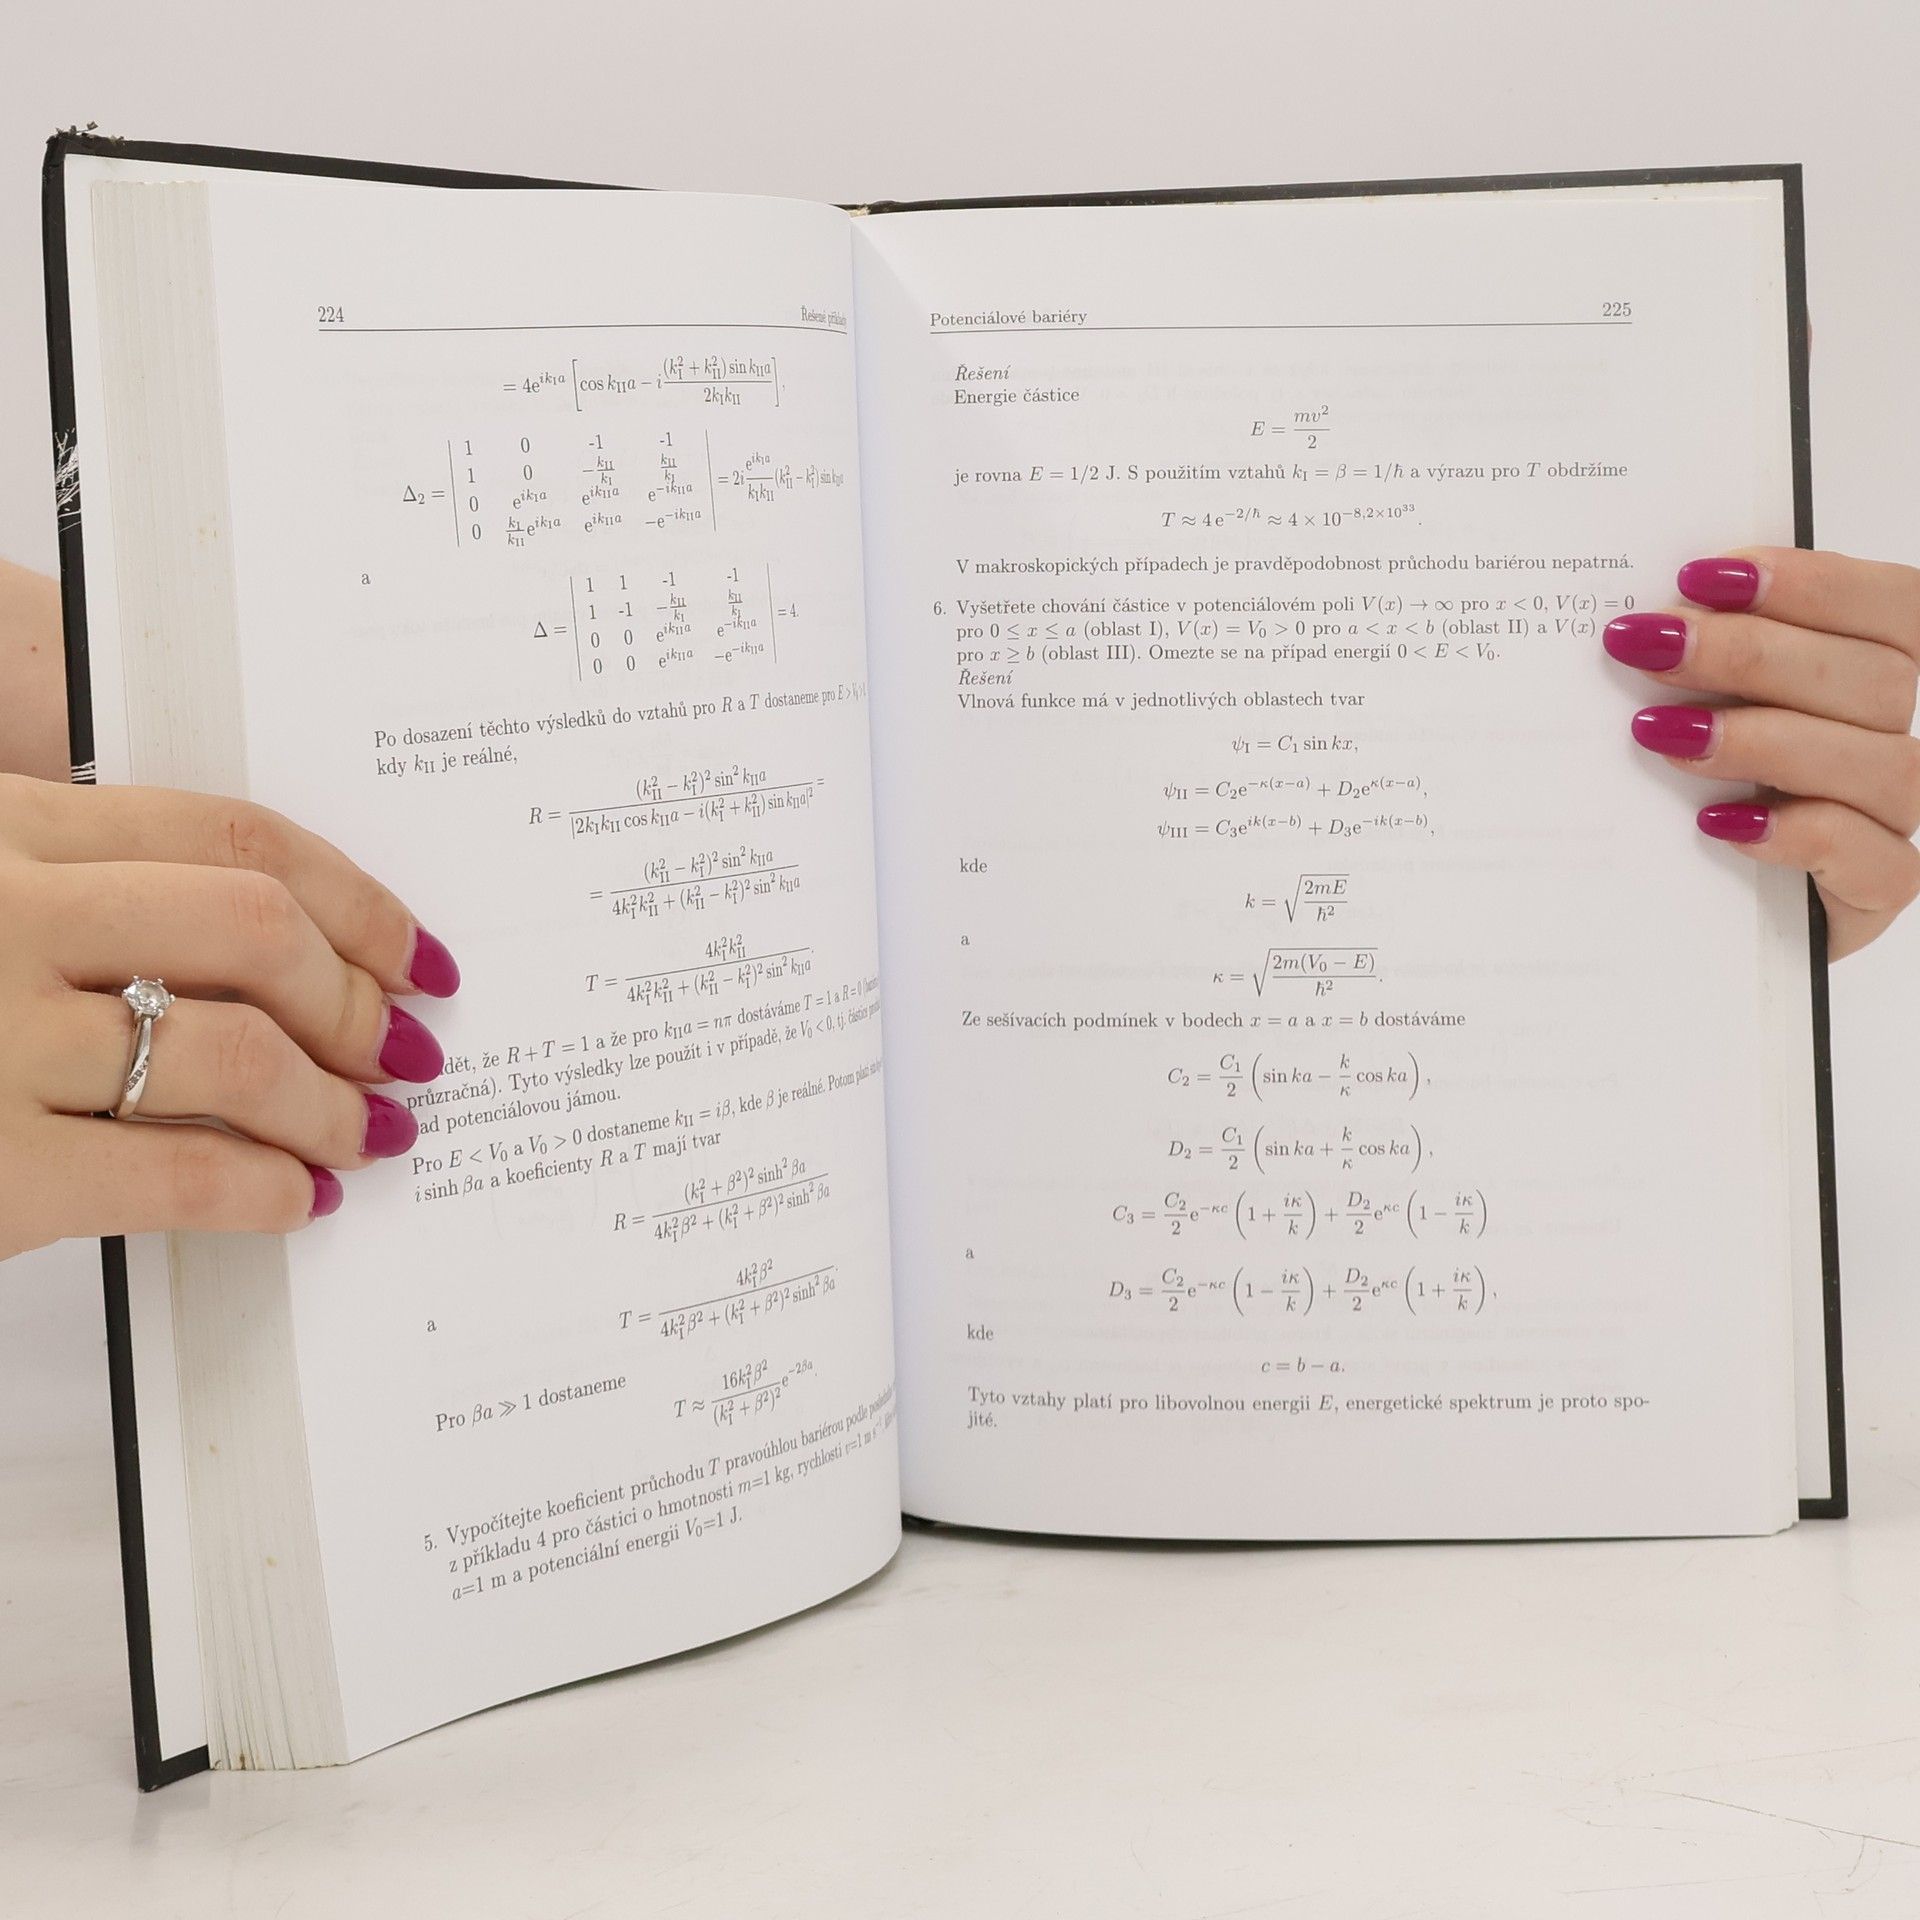 224 Řešené příklady
= 4e^{ik_I a} [cos k_{II}a − i (k_I^2 + k_{II}^2) sin k_{II}a / 2k_I k_{II}],
Δ_2 = | 1 0 -1 -1 |
| 1 0 −k_{II}/k_I k_{II}/k_I |
| 0 e^{ik_I a} e^{ik_{II}a} e^{−ik_{II}a} |
| 0 (k_I/k_{II}) e^{ik_I a} e^{ik_{II}a} −e^{−ik_{II}a} | = 2i (e^{ik_I a} / k_I k_{II}) (k_{II}^2 − k_I^2) sin k_{II}a
a
Δ = | 1 1 -1 -1 |
| 1 -1 −k_{II}/k_I k_{II}/k_I |
| 0 0 e^{ik_{II}a} e^{−ik_{II}a} |
| 0 0 e^{ik_{II}a} −e^{−ik_{II}a} | = 4.
Po dosazení těchto výsledků do vztahů pro R a T dostaneme pro E > V_0 >
kdy k_{II} je reálné,
R = (k_{II}^2 − k_I^2)^2 sin^2 k_{II}a / |2k_I k_{II} cos k_{II}a − i(k_I^2 + k_{II}^2) sin k_{II}a|^2 =
= (k_{II}^2 − k_I^2)^2 sin^2 k_{II}a / 4k_I^2 k_{II}^2 + (k_{II}^2 − k_I^2)^2 sin^2 k_{II}a
T = 4k_I^2 k_{II}^2 / 4k_I^2 k_{II}^2 + (k_{II}^2 − k_I^2)^2 sin^2 k_{II}a .
dět, že R + T = 1 a že pro k_{II}a = nπ dostáváme T = 1 a R = 0
průzračná). Tyto výsledky lze použít i v případě, že V_0 < 0, tj. částice
ad potenciálovou jámou.
Pro E < V_0 a V_0 > 0 dostaneme k_{II} = iβ, kde β je reálné. Potom platí
i sinh βa a koeficienty R a T mají tvar
R = (k_I^2 + β^2)^2 sinh^2 βa / 4k_I^2 β^2 + (k_I^2 + β^2)^2 sinh^2 βa
a
T = 4k_I^2 β^2 / 4k_I^2 β^2 + (k_I^2 + β^2)^2 sinh^2 βa .
Pro βa ≫ 1 dostaneme
T ≈ 16k_I^2 β^2 / (k_I^2 + β^2)^2 e^{−2βa}.
5. Vypočítejte koeficient průchodu T pravoúhlou bariérou podle
z příkladu 4 pro částici o hmotnosti m=1 kg, rychlosti v=1 m s^{−1},
a=1 m a potenciální energii V_0=1 J.
Potenciálové bariéry 225
Řešení
Energie částice
E = mv^2 / 2
je rovna E = 1/2 J. S použitím vztahů k_I = β = 1/ħ a výrazu pro T obdržíme
T ≈ 4 e^{−2/ħ} ≈ 4 × 10^{−8,2×10^{33}}.
V makroskopických případech je pravděpodobnost průchodu bariérou nepatrná.
6. Vyšetřete chování částice v potenciálovém poli V(x) → ∞ pro x < 0, V(x) = 0
pro 0 ≤ x ≤ a (oblast I), V(x) = V_0 > 0 pro a < x < b (oblast II) a V(x)
pro x ≥ b (oblast III). Omezte se na případ energií 0 < E < V_0.
Řešení
Vlnová funkce má v jednotlivých oblastech tvar
ψ_I = C_1 sin kx,
ψ_{II} = C_2 e^{−κ(x−a)} + D_2 e^{κ(x−a)},
ψ_{III} = C_3 e^{ik(x−b)} + D_3 e^{−ik(x−b)},
kde
k = √(2mE / ħ^2)
a
κ = √(2m(V_0 − E) / ħ^2).
Ze sešívacích podmínek v bodech x = a a x = b dostáváme
C_2 = C_1/2 (sin ka − k/κ cos ka),
D_2 = C_1/2 (sin ka + k/κ cos ka),
C_3 = C_2/2 e^{−κc} (1 + iκ/k) + D_2/2 e^{κc} (1 − iκ/k)
a
D_3 = C_2/2 e^{−κc} (1 − iκ/k) + D_2/2 e^{κc} (1 + iκ/k),
kde
c = b − a.
Tyto vztahy platí pro libovolnou energii E, energetické spektrum je proto spo-
jité.